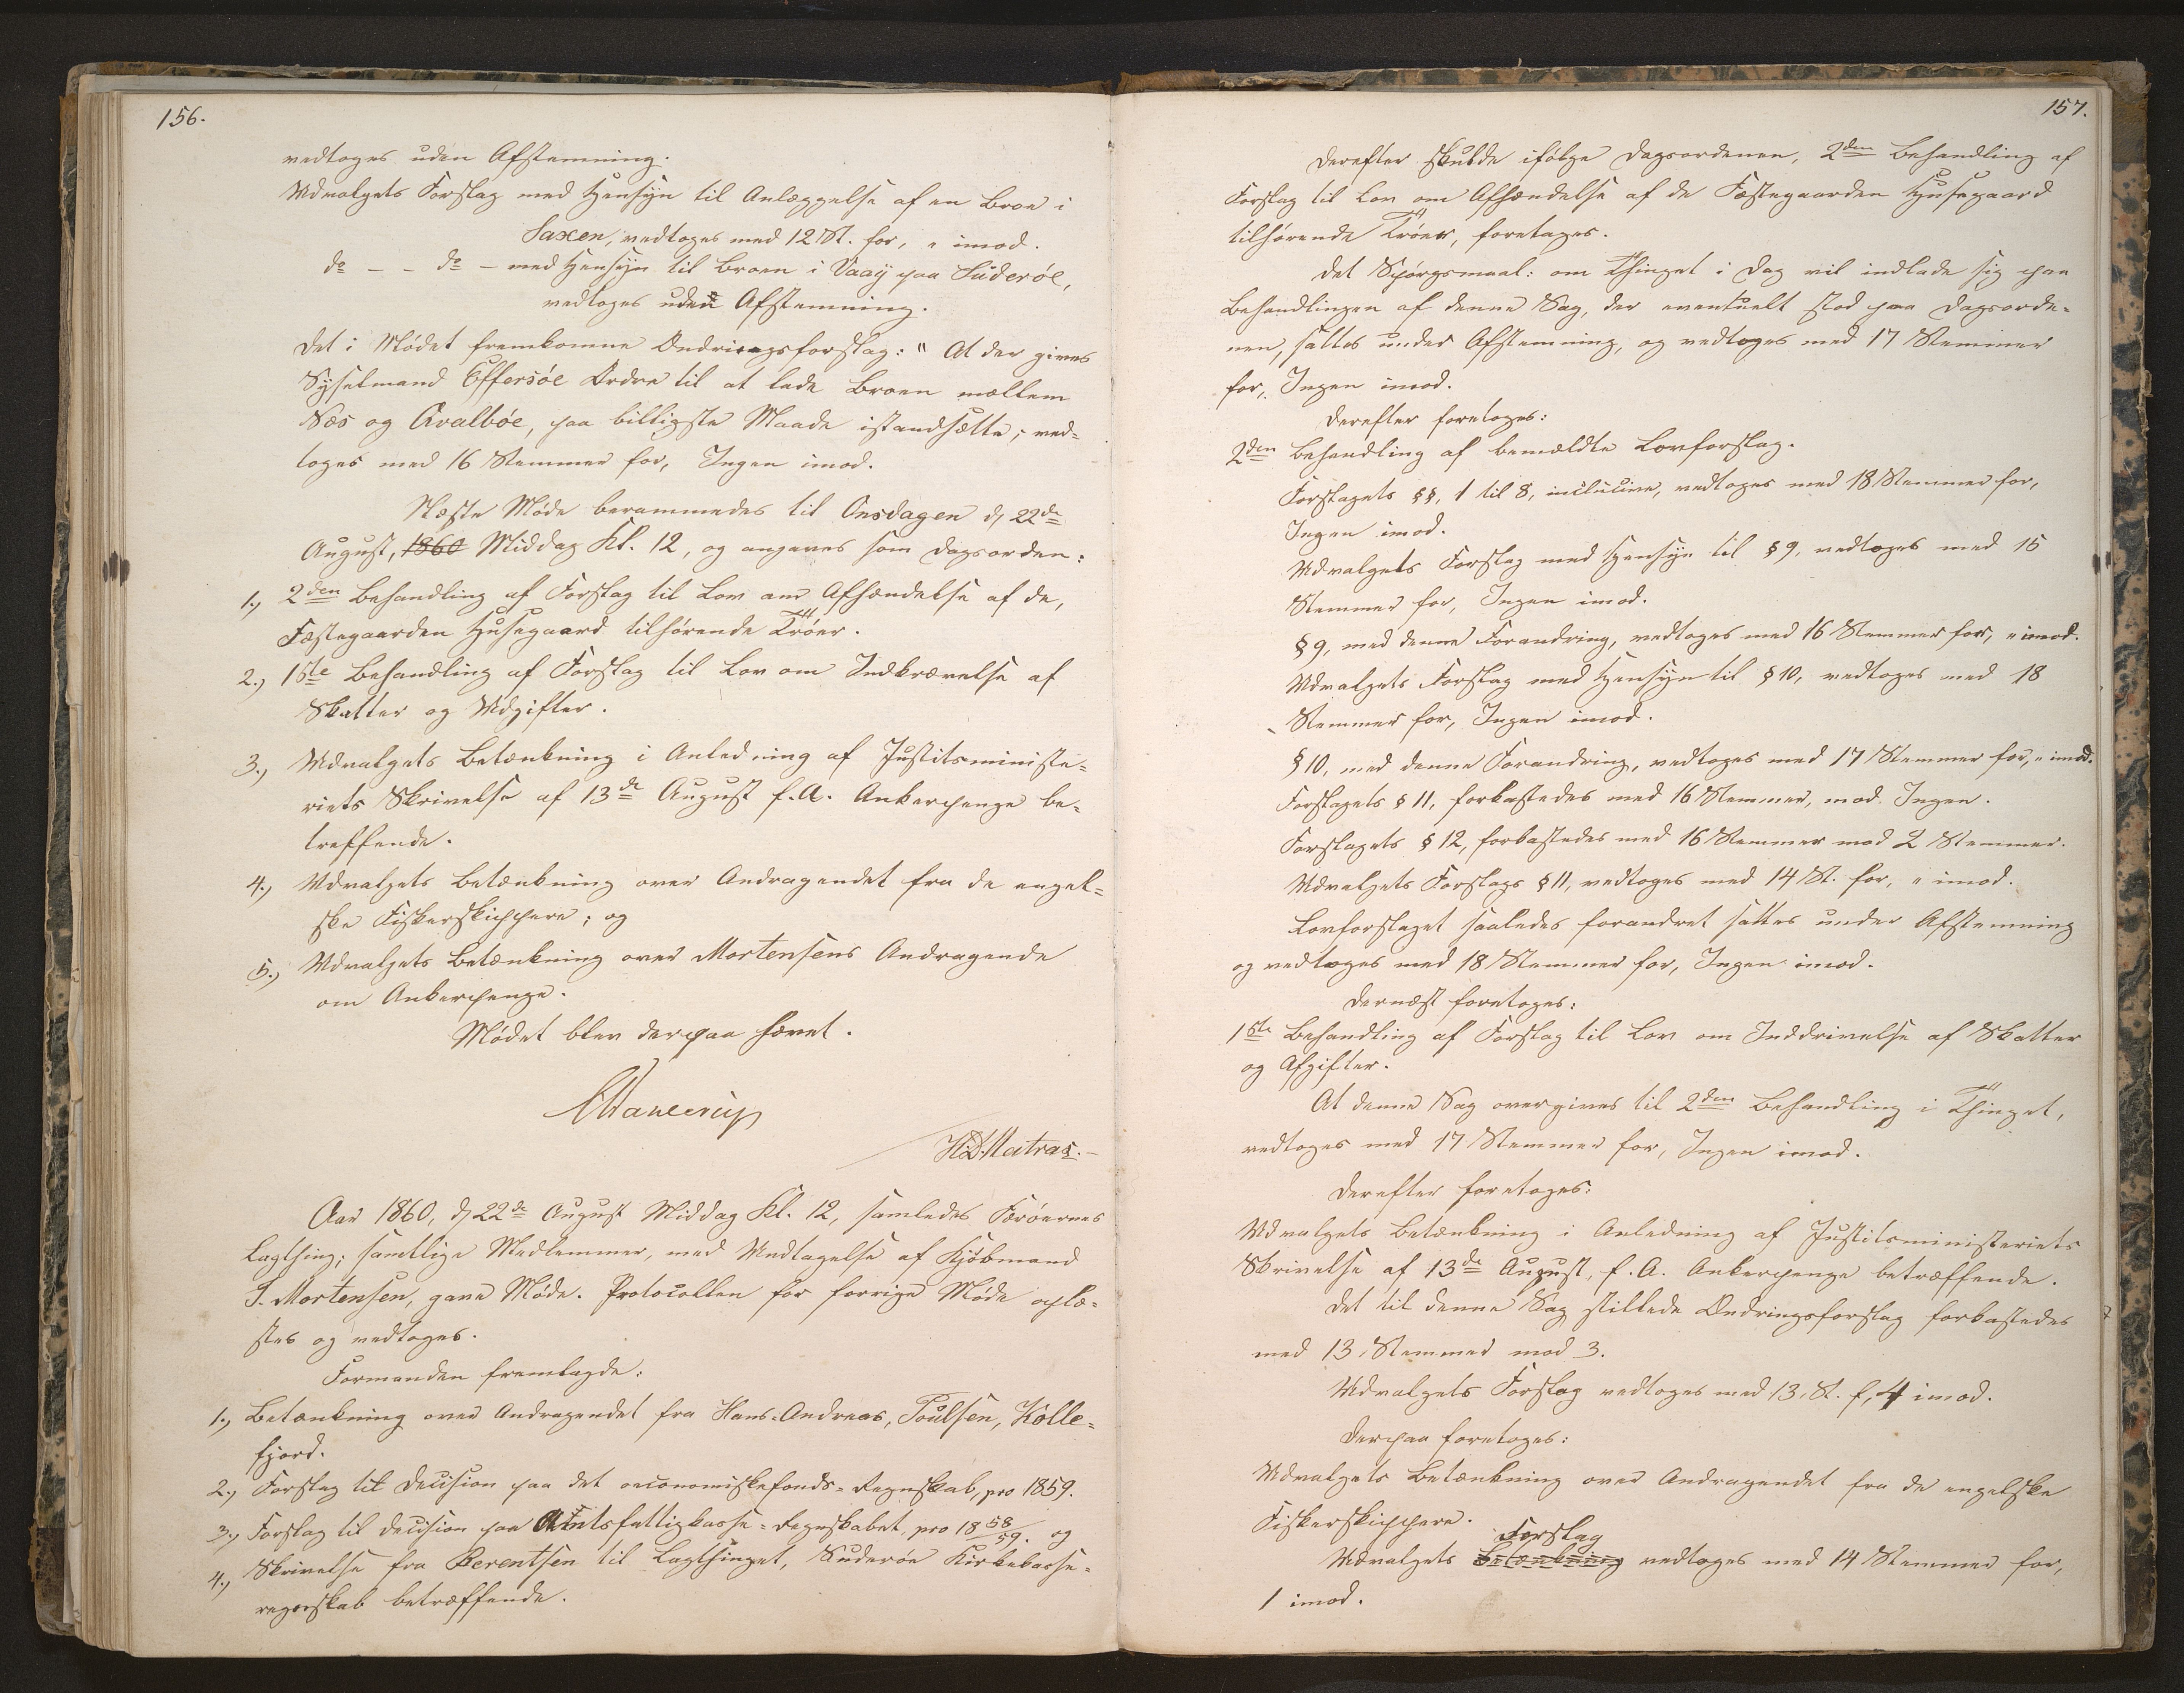 156.
vedtoges uden Afstemning.
Udvalgets Forslag med Hensyn til Anlæggelse af en Broe i
Saxen, vedtoges med 12 St. for, " imod.
do – – do – med Hensyn til Broen i Vaaÿ paa Suderöe,
vedtoges uden Afstemning.
Det i Mödet fremkomne Ændringsforslag: "At der gives
Sysselmand Effersöe Ordre til at lade Broen mellem
Næs og Qvalböe, paa billigste Maade istandsætte; ved=
toges med 16 Stemmer for, Ingen imod.
Næste Möde berammedes til Onsdagen d, 22de
August, 1860 Middag Kl. 12, og angaves som Dagsorden:
1., 2den Behandling af Forslag til Lov om Afhændelse af de,
Fæstegaarden Husegaard tilhörende Tröer.
2., 1ste Behandling af Forslag til Lov om Indkrævelse af
Skatter og Udgifter.
3., Udvalgets Betænkning i Anledning af Justitsministe=
riets Skrivelse af 13de August f.A. Ankerpenge be=
træffende.
4., Udvalgets Betænkning over Andragendet fra de engel=
ske Fiskerskippere; og
5., Udvalgets Betænkning over Mortensens Andragende
om Ankerpenge.
Mödet blev derpaa hævet.
CDahlerup
H.D. Matras.–
Aar 1860, d, 22de August Middag Kl. 12, samledes Færöernes
Lagthing; samtlige Medlemmer, med Undtagelse af Kjöbmand
J. Mortensen, gave Möde. Protocollen for forrige Möde oplæ=
stes og vedtoges.
Formanden fremlagde:
1., Betænkning over Andragendet fra Hans-Andreas, Poulsen, Kolle=
fjord.
2., Forslag til Decision paa det oeconomiskefonds-Regnskab, pro 1859.
3., Forslag til Decision paa Amtsfattigkasse-Regnskabet, pro 1858/59. og
4., Skrivelse fra Berentsen til Lagthinget, Suderöe Kirkekasse-
regnskab betræffende.
157.
Derefter skulde ifölge Dagsordenen, 2den Behandling af
Forslag til Lov om Afhændelse af de Fæstegaarden Husegaard
tilhörende Tröer, foretages.
Det Spörgsmaal: om Thinget i Dag vil indlade sig paa
Behandlingen af denne Sag, der eventuelt stod paa Dagsorde=
nen, sattes under Afstemning, og vedtoges med 17 Stemmer
for, Ingen imod.
Derefter foretoges:
2den Behandling af bemældte Lovforslag.
Forslagets §§, 1 til 8, inclusive, vedtoges med 18 Stemmer for,
Ingen imod.
Udvalgets Forslag med Hensyn til § 9, vedtoges med 15
Stemmer for, Ingen imod.
§ 9, med denne Forandring, vedtoges med 16 Stemmer for, " imod.
Udvalgets Forslag med Hensyn til § 10, vedtoges med 18
Stemmer for, Ingen imod.
§ 10, med denne Forandring, vedtoges med 17 Stemmer for, " imod.
Forslagets § 11, forkastedes med 16 Stemmer, mod Ingen.
Forslagets § 12, forkastedes med 16 Stemmer mod 2 Stemmer.
Udvalgets Forslags § 11, vedtoges med 14 St. for, " imod.
Lovforslaget saaledes forandret sattes under Afstemning
og vedtoges med 18 Stemmer for, Ingen imod.
Dernæst foretoges:
1ste Behandling af Forslag til Lov om Inddrivelse af Skatter
og Afgifter.
At denne Sag overgives til 2den Behandling i Thinget,
vedtoges med 17 Stemmer for, Ingen imod.
Derefter foretoges:
Udvalgets Betænkning i Anledning af Justitsministeriets
Skrivelse af 13de August, f.A. Ankerpenge betræffende.
Det til denne Sag stillede Ændringsforslag forkastedes
med 13 Stemmer mod 3.
Udvalgets Forslag vedtoges med 13, St. f, 4 imod.
Derpaa foretoges:
Udvalgets Betænkning over Andragendet fra de engelske
Fiskerskippere.
Forslag
Udvalgets Betænkning vedtoges med 14 Stemmer for,
1 imod.